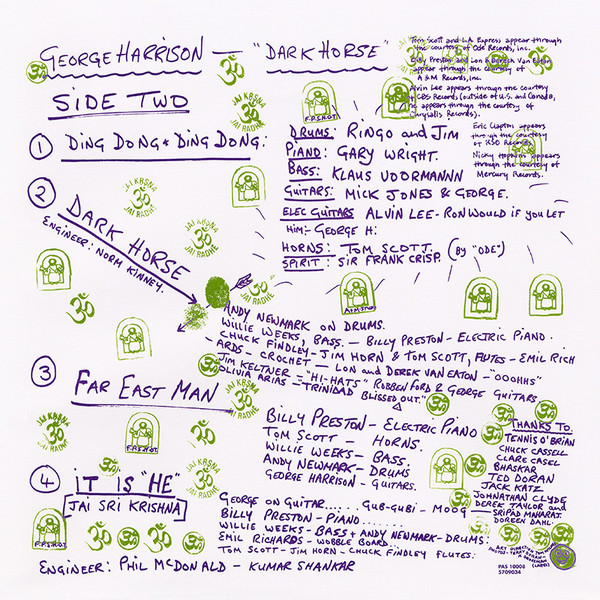 GEORGE HARRISON — "DARK HORSE"
Tom Scott and L.A. Express appear through
the courtesy of Ode Records, Inc.
Billy Preston and Lon & Derek Van Eaton
appear through the courtesy of
A & M Records, Inc.
Alvin Lee appears through the courtesy
of CBS Records (outside of U.S. and Canada,
he appears through the courtesy of
Chrysalis Records).
Eric Clapton appears
through the courtesy
of RSO Records.
Nicky Hopkins appears
through the courtesy of
Mercury Records.
SIDE TWO
① DING DONG * DING DONG:
DRUMS: RINGO AND JIM
PIANO: GARY WRIGHT.
BASS: KLAUS VOORMANN
GUITARS: MICK JONES & GEORGE.
ELEC GUITARS ALVIN LEE - RON WOULD IF YOU LET
HIM - GEORGE H:
HORNS: TOM SCOTT. (By "ODE")
SPIRIT: SIR FRANK CRISP.
② DARK HORSE
ENGINEER: NORM KINNEY.
ANDY NEWMARK ON DRUMS.
WILLIE WEEKS, BASS. — BILLY PRESTON - ELECTRIC PIANO.
CHUCK FINDLEY - JIM HORN & TOM SCOTT, FLUTES - EMIL RICH
- ARDS - CROCHET — LON AND DEREK VAN EATON - "OOOHHS"
JIM KELTNER = "HI-HATS" ROBBEN FORD & GEORGE GUITARS
OLIVIA ARIAS - "TRINIDAD BLISSED OUT."
③ FAR EAST MAN
BILLY PRESTON - ELECTRIC PIANO
TOM SCOTT - HORNS.
WILLIE WEEKS - BASS
ANDY NEWMARK - DRUMS
GEORGE HARRISON - GUITARS.
THANKS TO.
TENNIS O'BRIAN
CHUCK CASSELL
CLARE CASEL
BHASKAR
TED DORAN
JACK KATZ
JOHNATHAN CLYDE
DEREK TAYLOR AND
SRIPAD MAHARAJ.
DOREEN DAHL.
④ IT IS "HE"
JAI SRI KRISHNA
GEORGE ON GUITAR..... GUB-GUBI - MOOG
BILLY PRESTON - PIANO.......
WILLIE WEEKS - BASS + ANDY NEWMARK - DRUMS:
EMIL RICHARDS - WOBBLE BOARD...
TOM SCOTT - JIM HORN - CHUCK FINDLEY FLUTES:
ENGINEER: PHIL MCDONALD - KUMAR SHANKAR
PAS 10008
S709034
JAI KRSNA
ॐ
JAI RADHE
F.P.S.H.O.T.